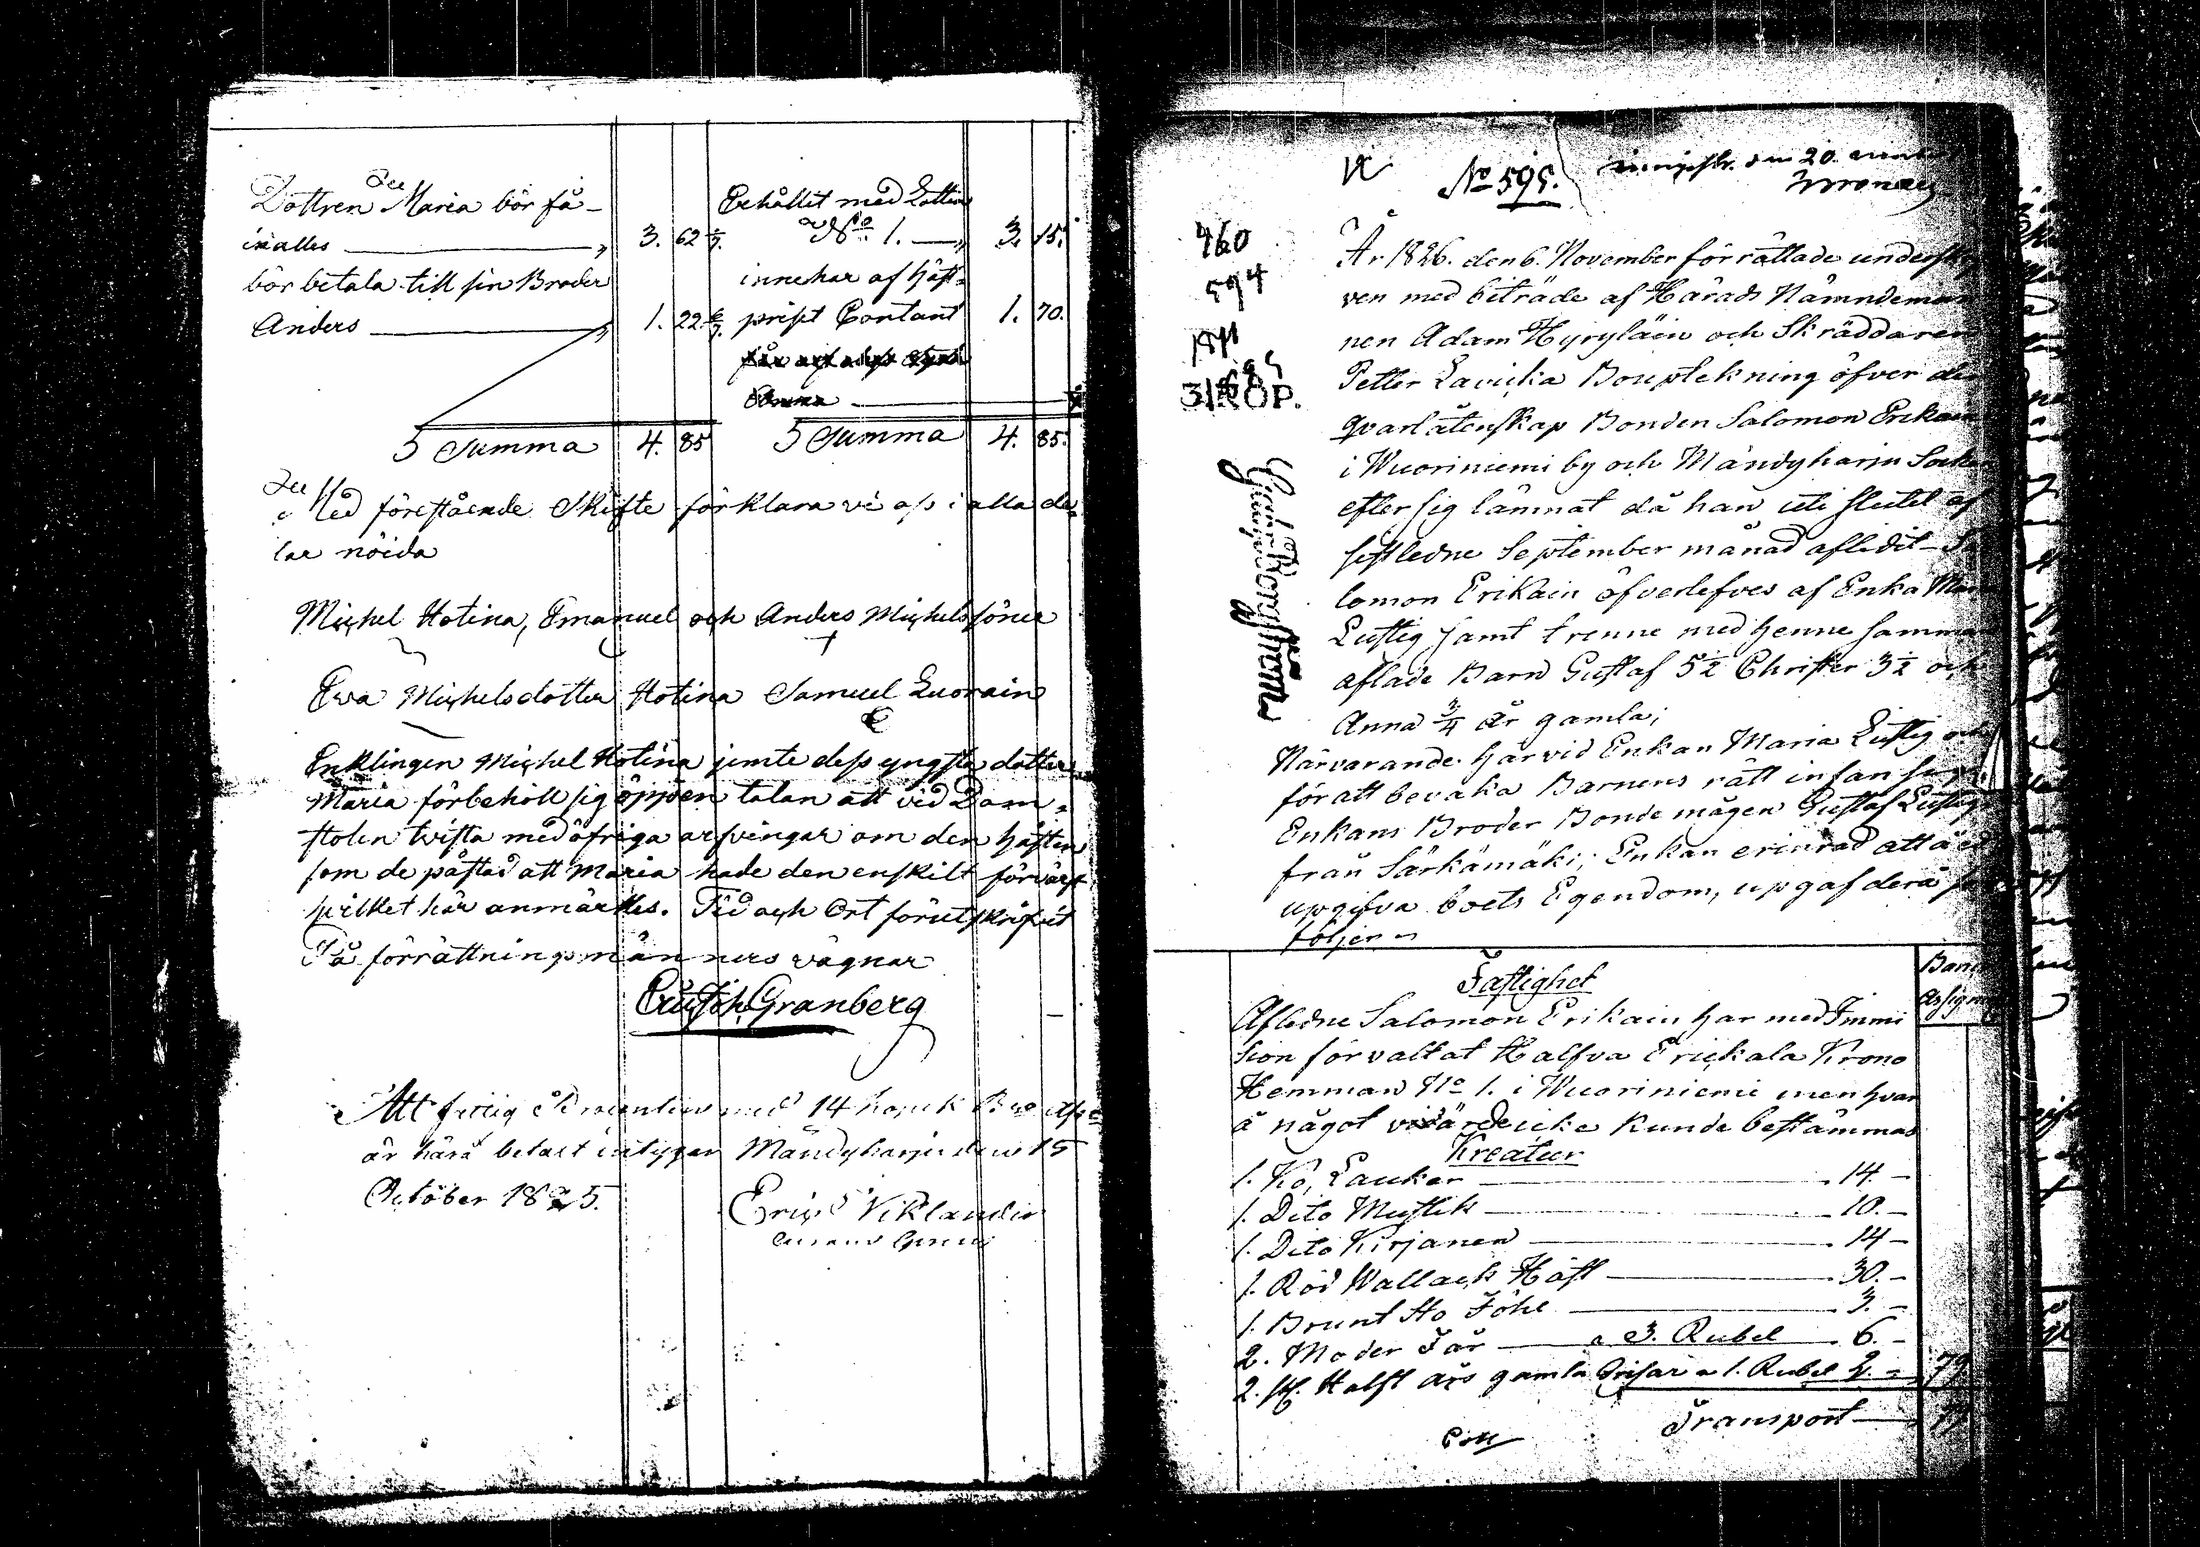 Dottren Maria bör få-
inalles 3. 62 6/7.
bör betala till sin Broder
Anders 1. 22 6/7
Erhållit med Lotten
No 1. 3. 15.
innehar af häst-
priset Contant 1. 70.
Summa 4. 85
Summa 4. 85.
Med förestående Skifte förklara vi oss i alla de-
lar nöida
Michel Hotina, Emanuel och Anders Michelssöner
Ewa Michelsdotter Hotina Samuel Luorain
Enklingen Michel Hotina jemte dess yngsta dotter
Maria förbehöll sig öppen talan att vid Dom-
stolen twista med öfriga arfvingar om den hästen
som de påstod att Maria hade den enskilt förvärft
hvilket här anmärktes. Tid och Ort förutskrifvit
På förrättningsmänners vägnar
Granberg
Att fattig Procenten med 14 kopek
är härå betalt intygar Mändyharju den 15
October 1825.
Eric Viklander
No 595.
den 20.
460
594
1811
31 KOP.
År 1826. den 6. November förrättade underskre
ven med biträde af Härads Nämndeman
nen Adam Hyryläin och Skräddaren
Petter Lavicka Bouptekning öfver den
qvarlåtenskap Bonden Salomon Erikain
i Wuoriniemi by och Mändyharju Socken
efter sig lämnat då han uti slutet af
sistledne September månad aflidit Sa
lomon Erikain öfverlefves af Enka Maria
Lustig samt trenne med henne samman
aflade Barn Gustaf 5 1/2 Christer 3 1/2 och
Anna 3/4 år gamla;
Närvarande härvid Enkan Maria Lustig och
för att bevaka Barnens rätt infan sig
Enkans Broder Bonde mågen Gustaf Lustig
från Särkämäki; Enkan erinrad att
upgifva boets Egendom, upgaf derå som
följer
Fastighet
Afledne Salomon Erikain har med Immi
sion förvaltat Halfva Erickala Krono
Hemman No 1. i Wuoriniemi men hvar
å något värde icke kunde bestämmas
Kreatur
1. Ko, Lauker 14. -
1. Dito Mustik 10. -
1. Dito Kirjanen 14 -
1. Röd Wallack Häst 30. -
1. Brunt Sto Föhl 3. -
2. Moder Får a 3. Rubel 6. -
2. st. Halft års gamla Grisar a 1. Rubel 2. - 79
Transport 79